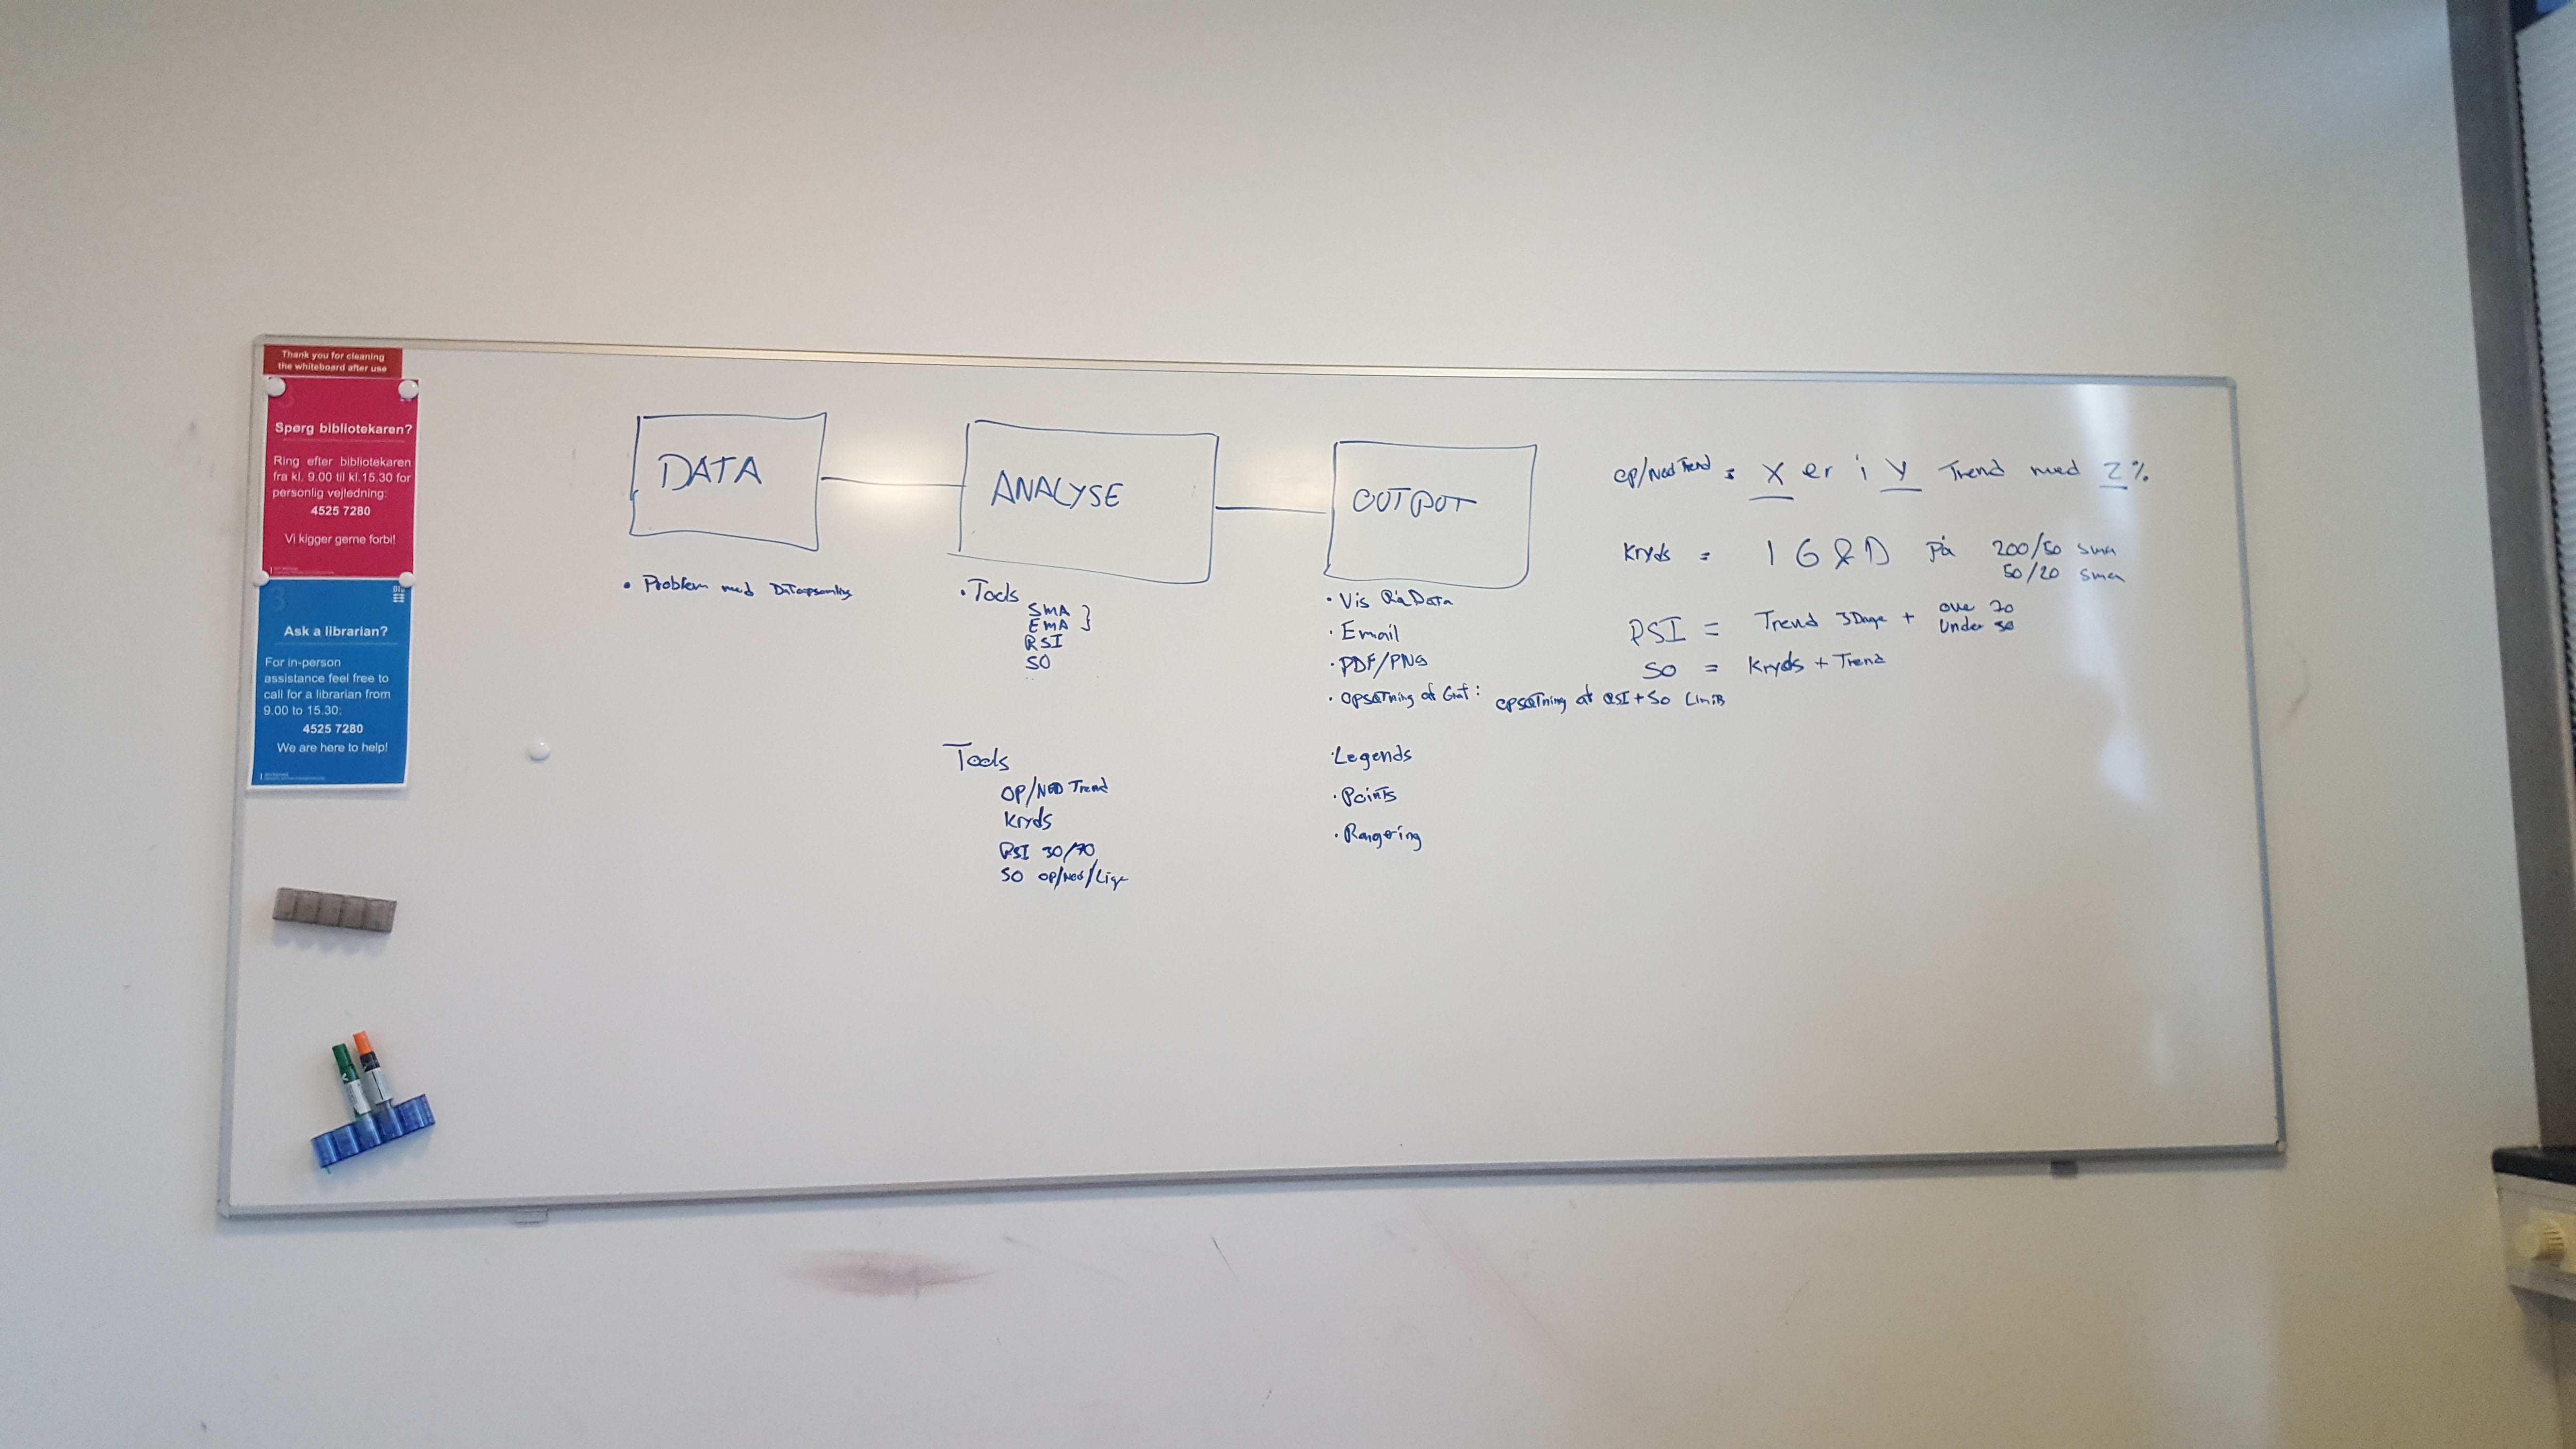 Thank you for cleaning
the whiteboard after use
Spørg bibliotekaren?
Ring efter bibliotekaren
fra kl. 9.00 til kl.15.30 for
personlig vejledning:
4525 7280
Vi kigger gerne forbi!
Ask a librarian?
For in-person
assistance feel free to
call for a librarian from
9.00 to 15.30:
4525 7280
We are here to help!
DATA
• Problem med
ANALYSE
• Tools
SMA }
EMA
RSI
SO
Tools
OP/NED Trend
Kryds
RSI 30/70
SO op/Ned/Lige
OUTPUT
• Vis Rå Data
• Email
• PDF/PNG
• Opsætning af Graf: opsætning af RSI + SO Limits
• Legends
• Points
• Rangering
op/Ned Trend = X er i Y Trend med Z %
Kryds = 1 G & D På 200/50 sma
50/20 sma
RSI = Trend 3 Dage + over 70
Under 30
SO = Kryds + Trend